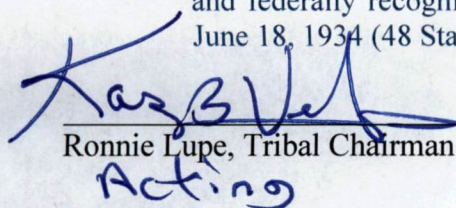 and federally recogn
June 18, 1934 (48 Sta
Ronnie Lupe, Tribal Chairman
Acting